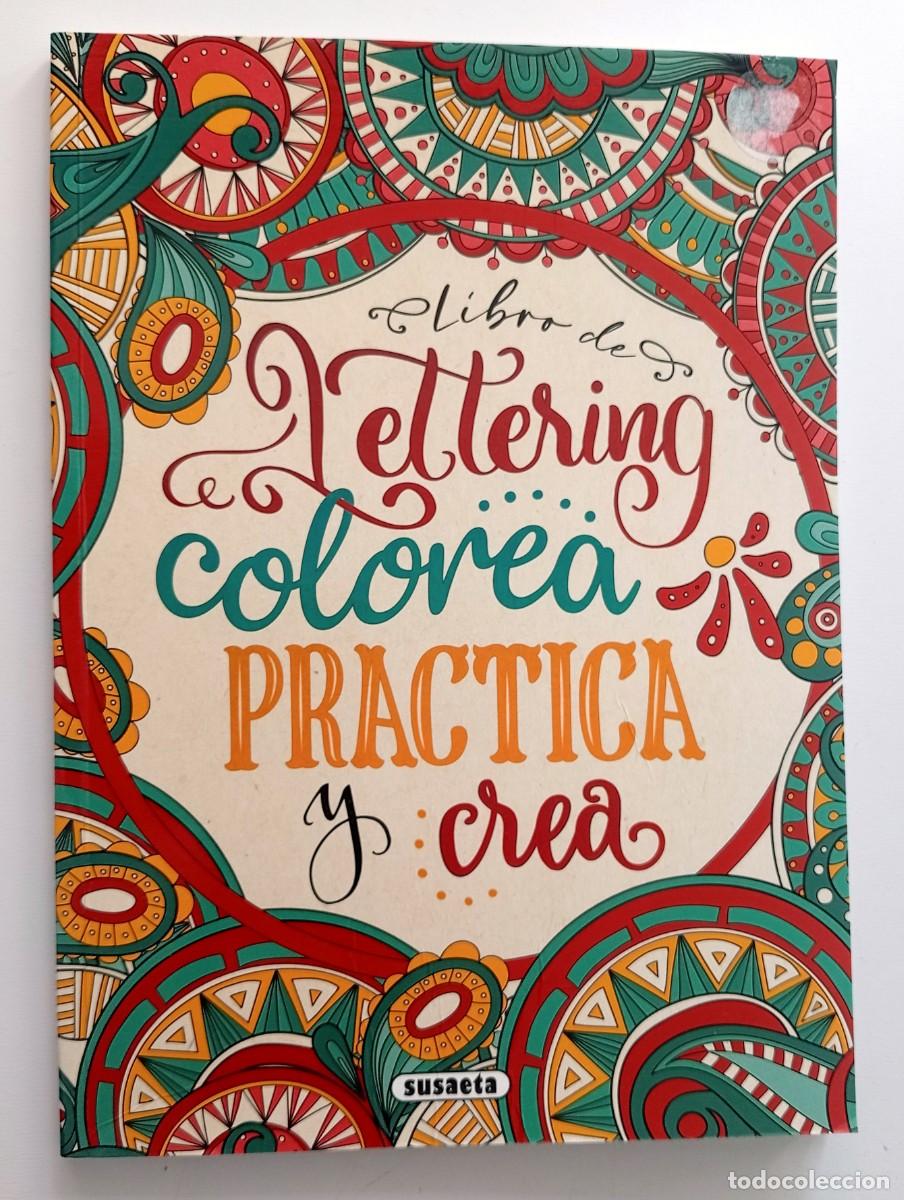 Libro de
Lettering
colorea
PRACTICA
y crea
susaeta
todocoleccion